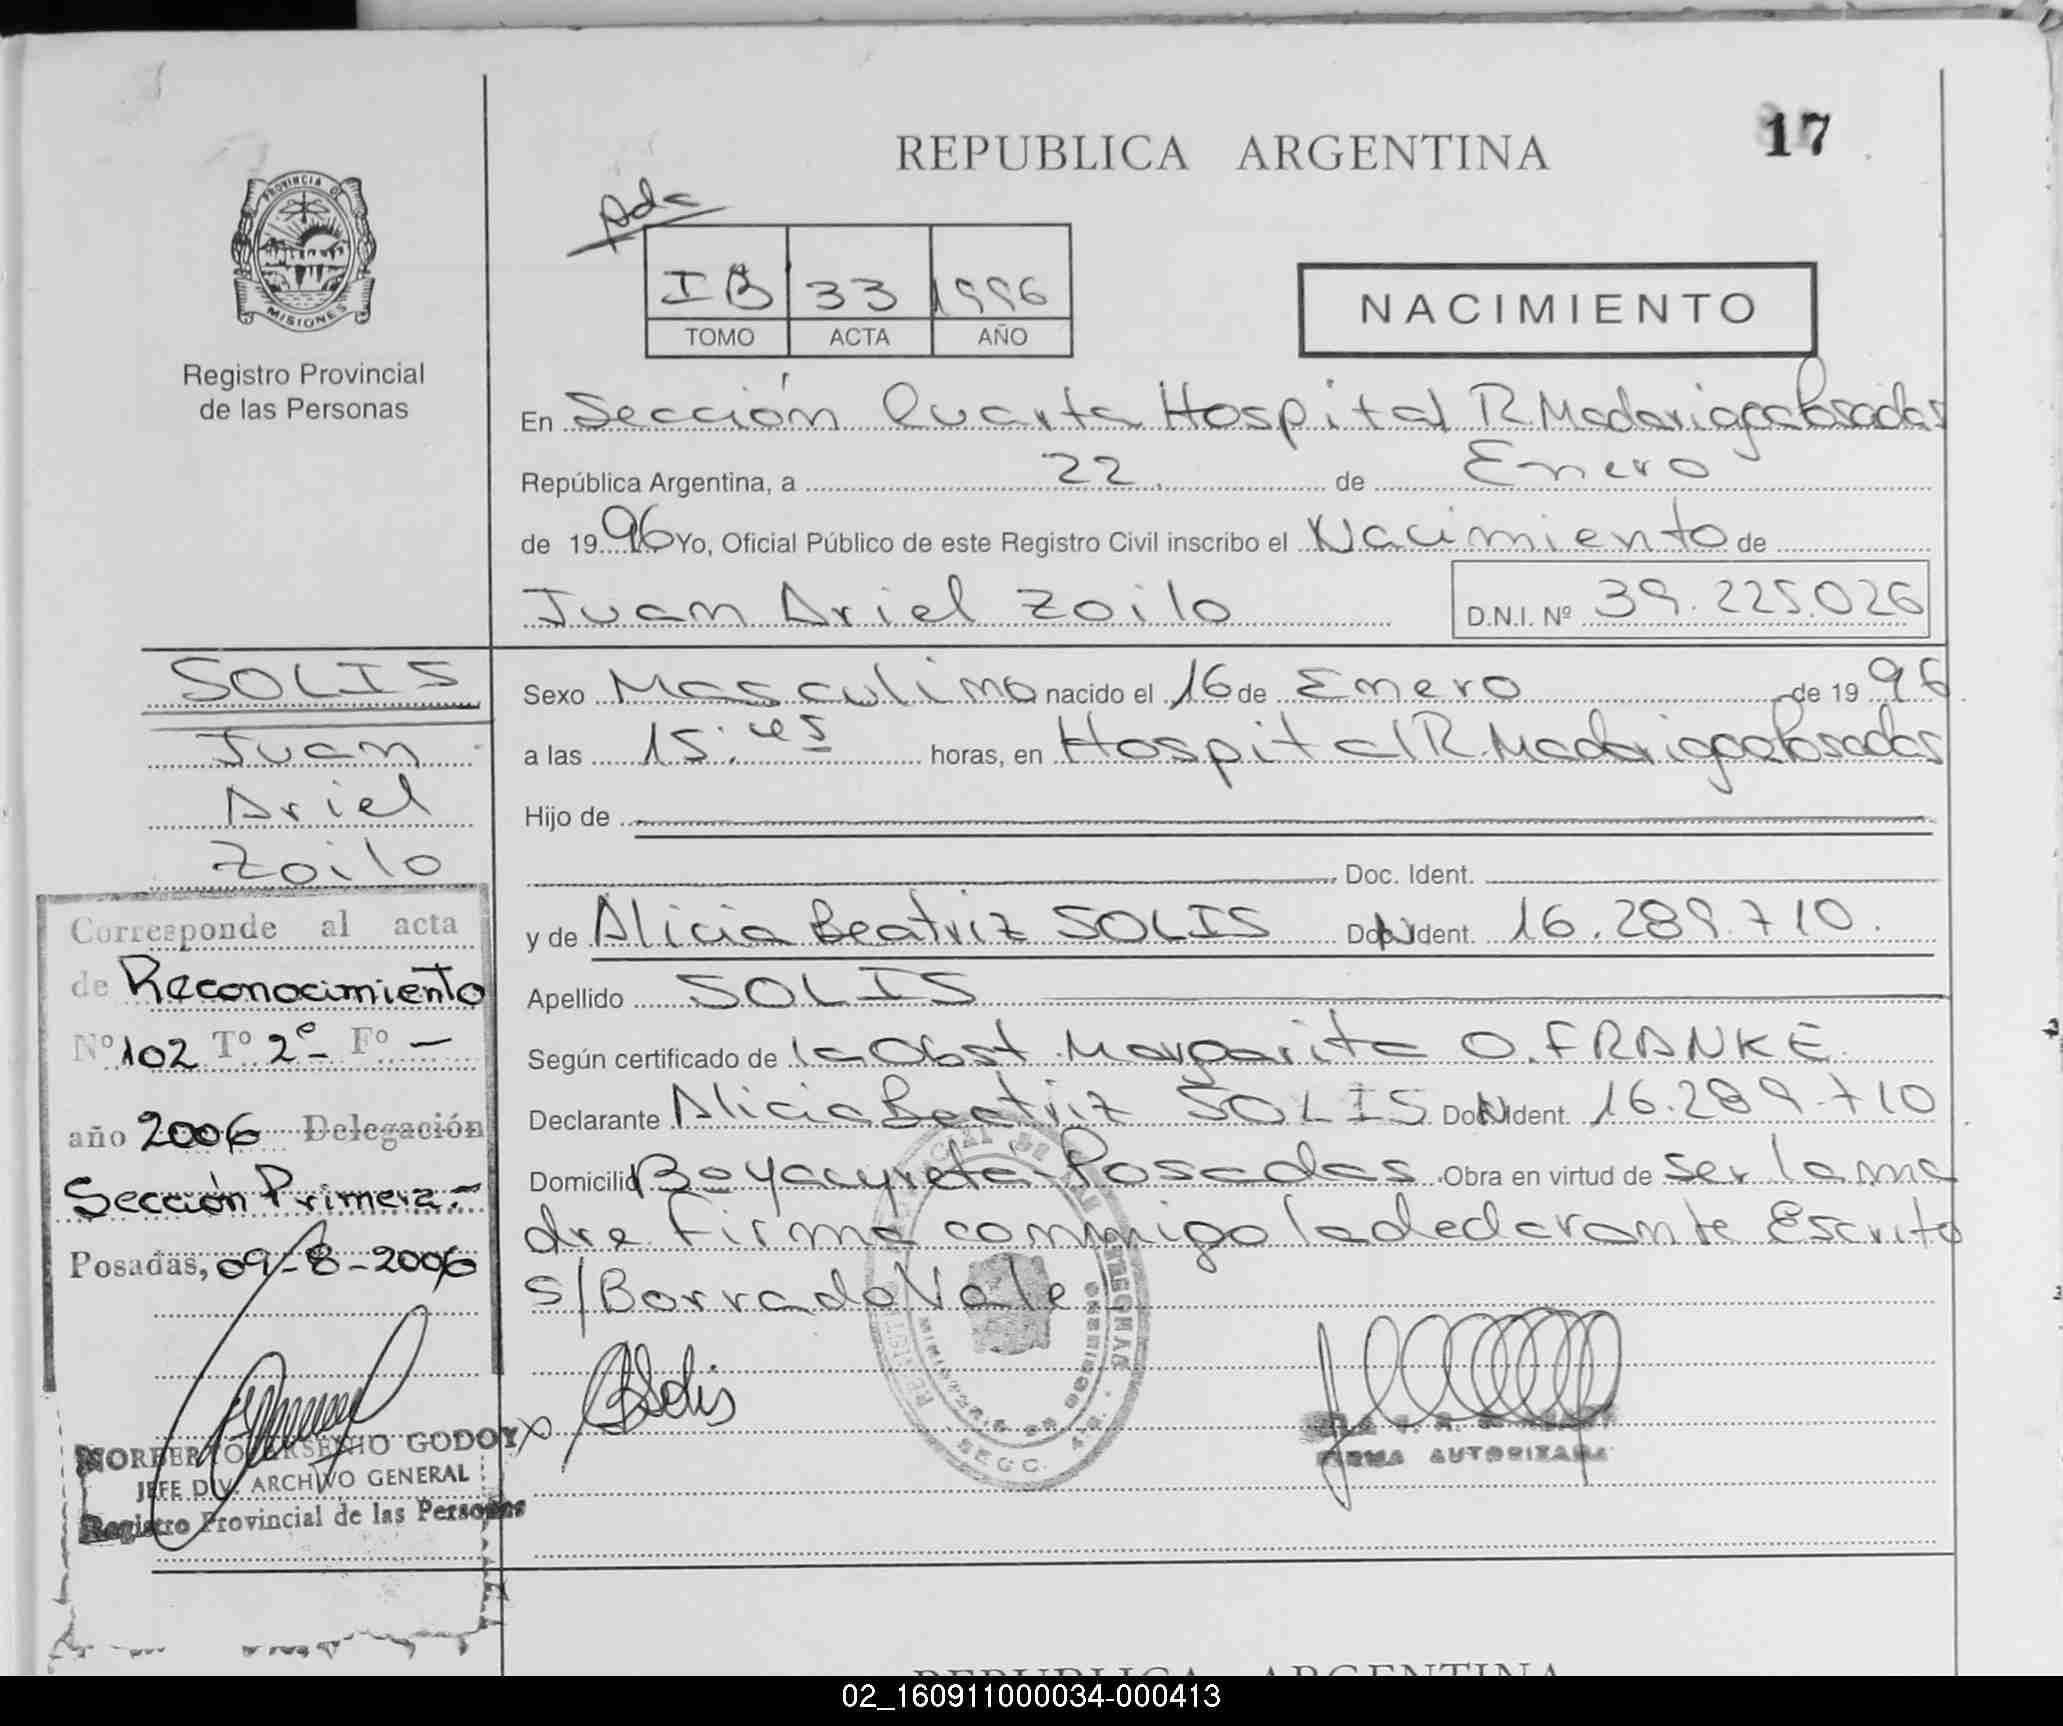 17
REPUBLICA ARGENTINA
PROVINCIA DE
MISIONES
Registro Provincial
de las Personas
Adc
IB 33 1996
TOMO ACTA AÑO
NACIMIENTO
En Sección Cuarta Hospital R. Madariaga Posadas
República Argentina, a 22 de Enero
de 1996 Yo, Oficial Público de este Registro Civil inscribo el Nacimiento de
Juan Ariel Zoilo D.N.I. Nº 39.225.026
SOLIS
Juan
Ariel
Zoilo
Sexo Masculino nacido el 16 de Enero de 1996
a las 15:45 horas, en Hospital R. Madariaga Posadas
Hijo de
Doc. Ident.
y de Alicia Beatriz SOLIS Doc. Ident. 16.289.710.
Apellido SOLIS
Según certificado de la Obst. Margarita O. FRANKE
Declarante Alicia Beatriz SOLIS Doc. Ident. 16.289.710
Domicilio Boyacyretá-Posadas Obra en virtud de ser la ma
dre firma conmigo la declarante Escrito
s/Borrado Vale
Corresponde al acta
de Reconocimiento
Nº 102 Tº 2º- Fº -
año 2006 Delegación
Sección Primera.-
Posadas, 09-8-2006
NORBERTO ARSENIO GODOY
JEFE DIV. ARCHIVO GENERAL
Registro Provincial de las Personas
Solis
SECC. 4ª
FIRMA AUTORIZADA
REPUBLICA ARGENTINA
02_160911000034-000413